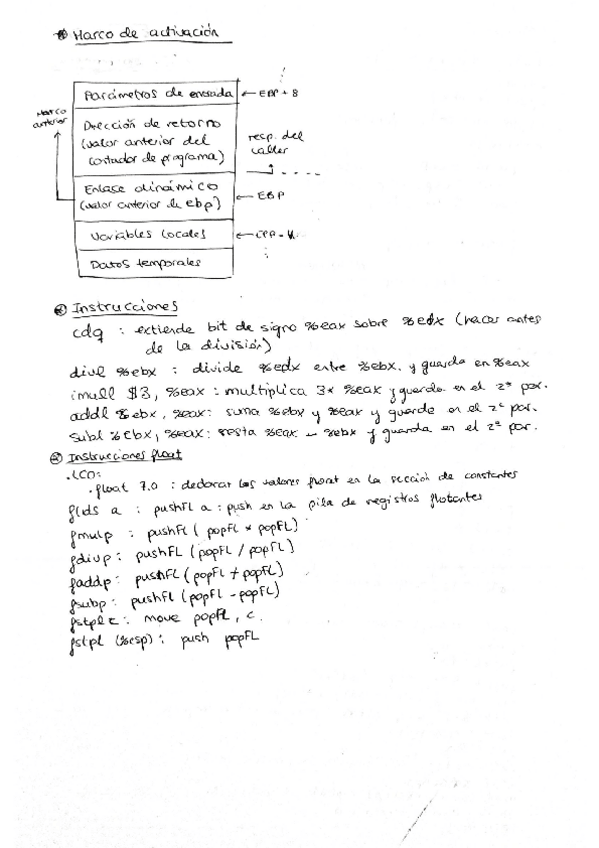 Marco de activación
Parámetros de entrada ← EBP + 8
Marco anterior
Dirección de retorno
(valor anterior del
contador de programa)
resp. del
caller
Enlase dinámico
(valor anterior de ebp) ← EBP
Variables locales
Datos temporales
Instrucciones
cdq : extiende bit de signo %eax sobre %edx (hacer antes
de la división)
divl %ebx : divide %edx entre %ebx. y guarda en %eax
imull $3, %eax : multiplica 3* %eax y guarda en el 2º par.
addl %ebx, %eax: suma %ebx y %eax y guarda en el 2º par.
subl %ebx, %eax: resta %eax - %ebx y guarda en el 2º par.
Instrucciones float
.LC0:
.float 7.0 : declarar los valores float en la sección de constantes
flds a : pushFL a : push en la pila de registros flotantes
fmulp : pushFL (popFL * popFL)
fdivp : pushFL (popFL / popFL)
faddp : pushFL (popFL + popFL)
fsubp : pushFL (popFL - popFL)
fstpl c : move popFL, c
fstpl (%esp) : push popFL